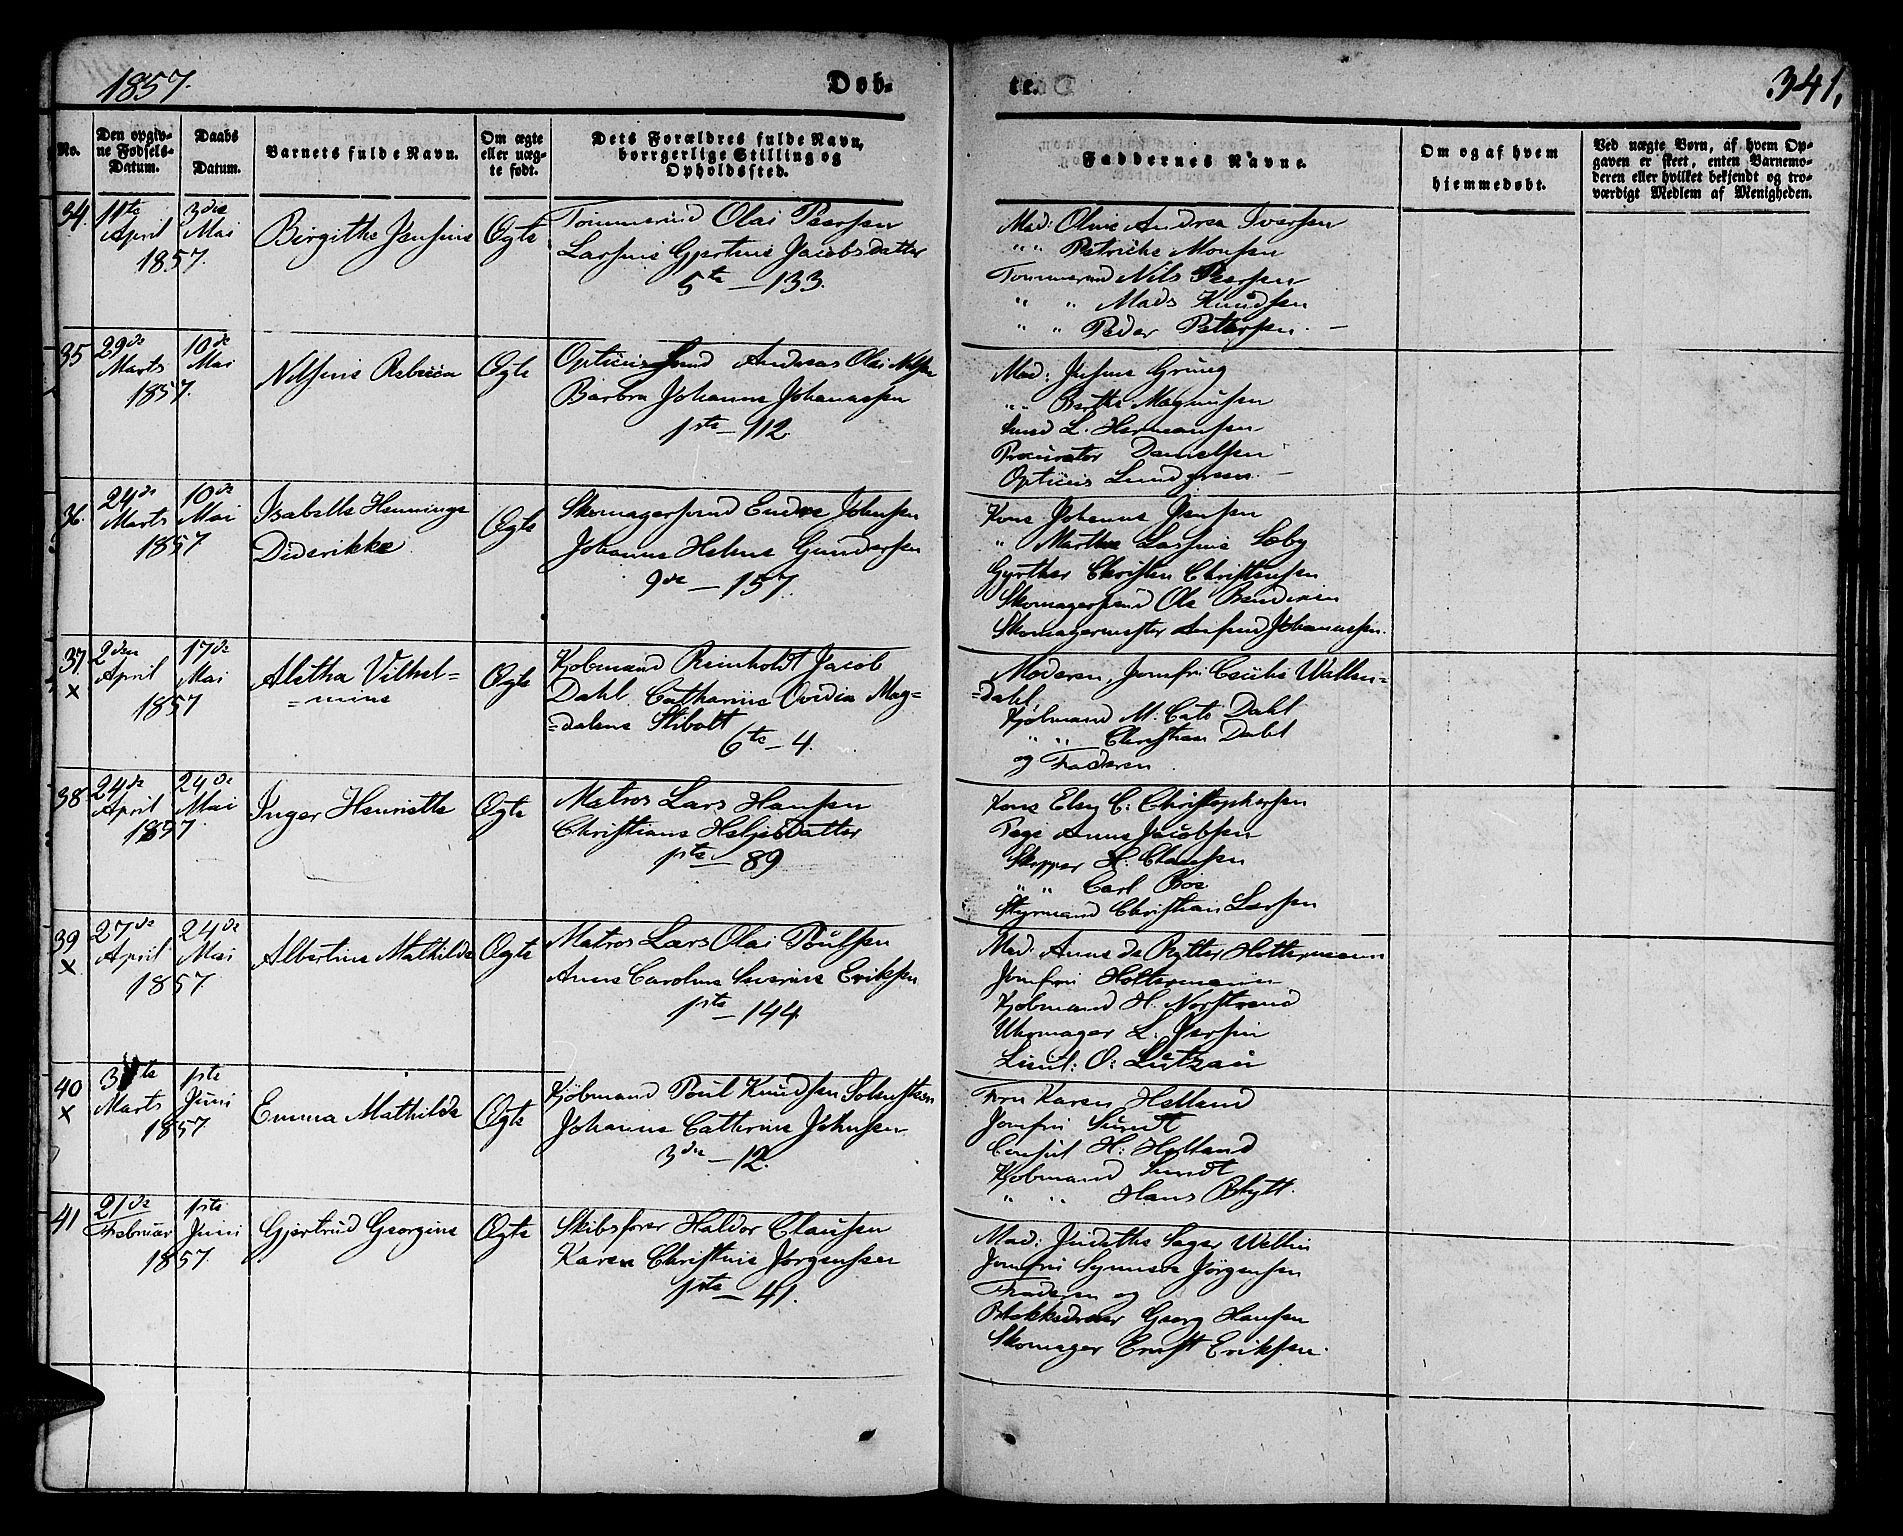 1857.
Døb-
te.
341.
No.
Den opgiv-
ne Fødsels-
Datum.
Daabs
Datum.
Barnets fulde Navn.
Om ægte
eller uæg-
te født.
Dets Forældres fulde Navn,
borrgerlige Stilling og
Opholdssted.
Faddernes Navne.
Om og af hvem
hjemmedøbt.
Ved uægte Børn, af hvem Op-
gaven er skeet, enten Barnemo-
deren eller hvilket bekjendt og tro-
værdigt Medlem af Menigheden.
34.
April
1857.
3die
Mai
Birgithe Jensine
Ægte
Tømmermd Olai Peersen
Larsine Gjertine Jacobsdatter
5te — 133.
Mad: Oline Andrea Iversen
" " Petriche Monsen
Tømmermd Nils Peersen
" " Mads Knudsen
" " Peder Petersen. —
35
29de
Marts
1857.
10de
Mai
Nilsine Rebecca
Ægte
Opticussvend Andreas Olai Nilsen
Barbra Johanne Johannesen
1ste — 112.
Mad: Jensine Grung
" " Berthe Magnusen
Svend L. Hermansen
Procurator Danielsen
Opticus Lundgreen. —
36.
24de
Marts
1857
10de
Mai
Isabelle Henninge
Diderikke
Ægte
Skomagersvend Endre Johnsen
Johanne Helene Gundersen
9de — 157.
Kone Johanne Jensen
" Marthe Larsine Sæby
Gyrther Christen Christensen
Skomagersvend Ole
Skomagermester Johannesen.
37.
x
2den
April
1857
17de
Mai
Aletha Vilhel=
=mine
Ægte
Kjøbmand Reinholdt Jacob
Dahl, Catharine Ovidia Mag=
=dalene Stibolt
6te — 4.
Moderen, Jomfru Wallen=
=dahl
Kjøbmand M. Cato Dahl
" " Christian Dahl
og Faderen
38
24de
April
1857
24de
Mai
Inger Henriette
Ægte
Matros Lars Hansen
Christiane Helgesdatter
1ste — 89
Kone Elsy C: Christophersen
Pige Anne Jacobsen
Skipper H. Clausen
" " Carl Boe
Styrmand Christian Larsen
39
x
27de
April
1857
24de
Mai
Albertine Mathilde
Ægte
Matros Lars Olai Poulsen
Anne Caroline Severine Eriksen
1ste — 144.
Mad: Anne de Rytter Holtermann
Jomfru Holtermann
Kjøbmand H. Norstrand
Uhrmager L. Iversen
Lieut: O: Lützau
40
x
Marts
1857
1ste
Juni
Emma Mathilde
Ægte
Kjøbmand Poul Knudsen
Johanne Catterine Johnsen.
3die — 12.
Fru Karen Helland
Jomfru Sundt
Consul H: Helland
Kjøbmand Sundt
" " Hans Blytt.
41
21de
Februar
1857.
1ste
Juni
Gjertrud Georgine
Ægte
Skibsfører Haldor Clausen
Karen Christine Jørgensen
1ste — 41.
Mad: Judithe Sager Wallin
Jomfru Synneve Jørgensen
Faderen og
Blokkedreier Georg Hansen
Skomager Ernst Eriksen.